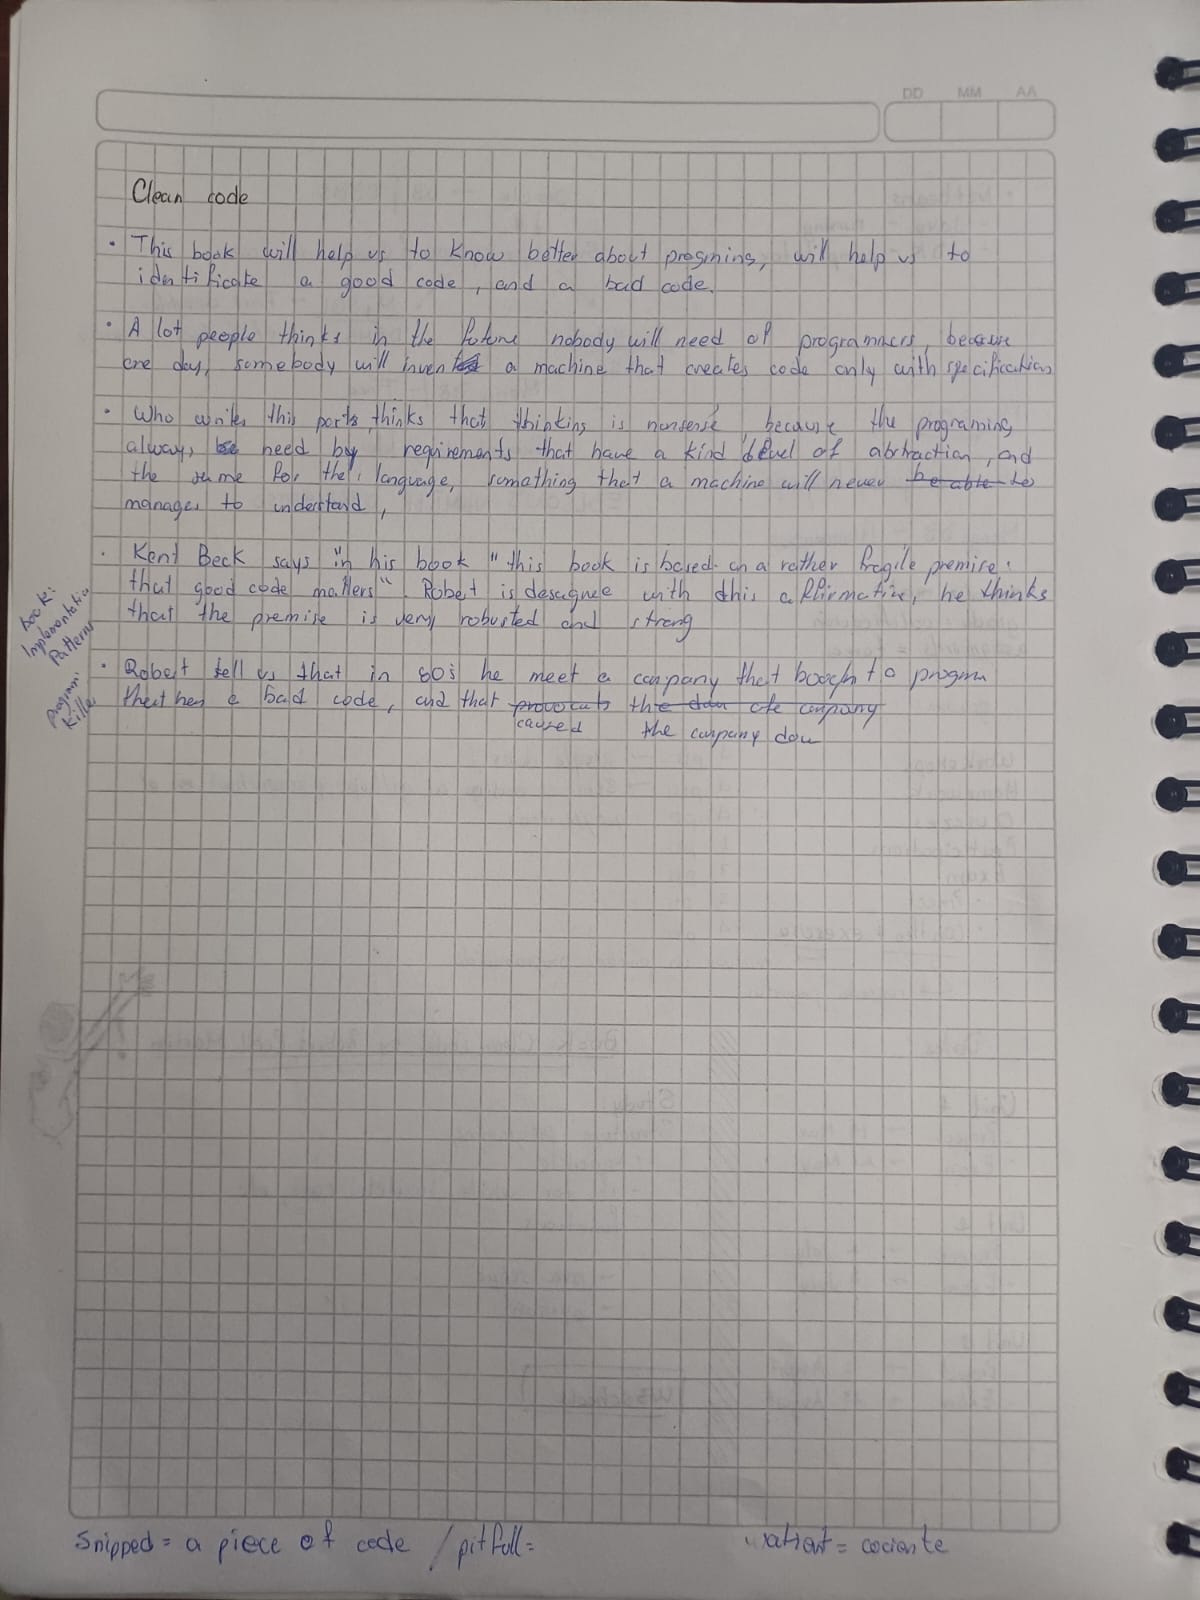 DD MM AA
Clean code
· This book will help us to know better about progrmining, will help us to
identificate a good code, and a bad code.
· A lot people thinks in the future nobody will need of programmers, because
one day, somebody will invent a machine that creates code only with specification
· Who writes this parts thinks that thinking is nonsense, because the programing
always be need by requirements that have a kind level of abstraction, and
the same for the language, something that a machine will never be able to
manages to understand,
· Kent Beck says "in his book "this book is based on a rather fragile premise:
that good code matters". Robert is desagnee with this affirmative, he thinks
that the premise is very robusted and strong
book:
Implementatio
Patterns
· Robert tell us that in 80s he meet a company that to progrm
that hes a bad code, and that provocats the company
caused the company dow
program:
Killer
snipped = a piece of code / pitfall =
= cociente